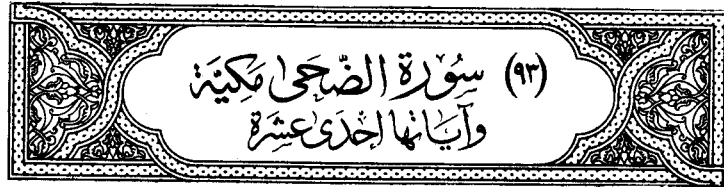 (٩٣) سُورَة الضّحىٰ مَكيّة
وَآيَاتهَا إحْدَىٰ عَشَرة